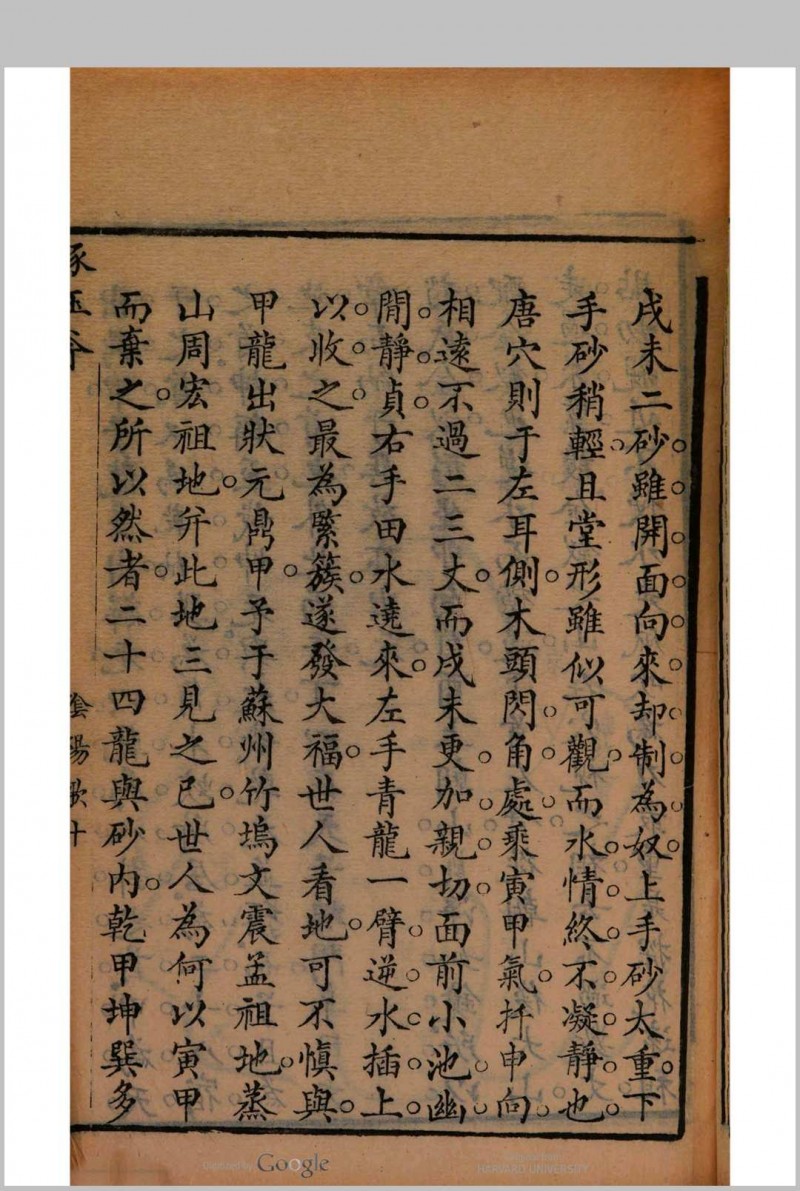 戌未二砂雖開面向來却制為奴上手砂太重下
手砂稍輕且堂形雖似可觀而水情終不凝靜也
唐穴則于左耳側木頭閃角處乘寅甲氣扦申向
相遠不過二三丈而戌未更加親切面前小池幽
閒靜貞右手田水遶來左手青龍一臂逆水插上
以收之最為緊簇遂發大福世人看地可不慎與
甲龍出狀元鼎甲予于蘇州竹塢文震孟祖地蒸
山周宏祖地并此地三見之已世人為何以寅甲
而棄之所以然者二十四龍與砂內乾甲坤巽多
陰陽歌十
Digitized by Google
Original from
HARVARD UNIVERSITY